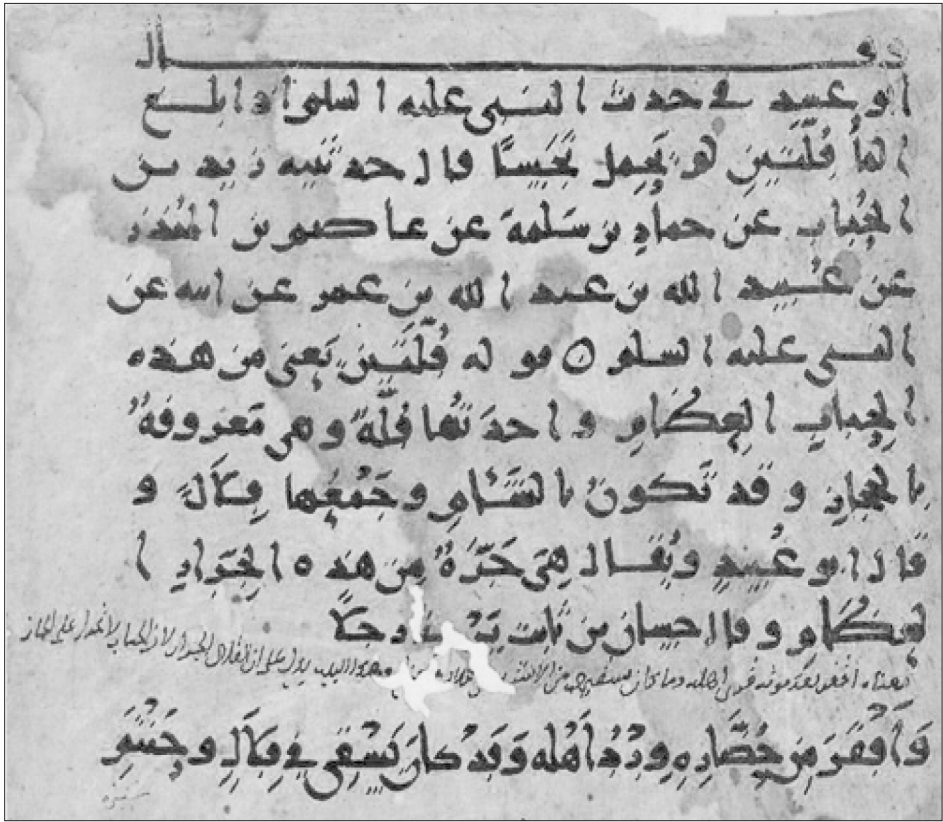 وقال
ابو عبيد في حديث النبي عليه السلم اذا بلغ
الما قُلَّتَينِ لم يَحمِل نَجَسًا قال حدثنيه زيد بن
الحُبابِ عن حمادِ بن سَلمةَ عن عاصم بن المُنذر
عن عُبيد الله بن عبد الله بن عمر عن ابيه عن
النبي عليه السلم ○ قوله قُلَّتَينِ يَعني من هذه
الحِبابِ العِظامِ واحدتها قُلَّةٌ وهي مَعروفةٌ
بالحجازِ وقد تَكون بالشَّامِ وجَمعُها قِلالٌ و
قال ابو عُبيدٍ ويُقال هِيَ جَرَّةٌ مِن هذه الجِرَارِ ا
لعِظامِ وقال حسان بن ثابت رجلا
معناه اقفر بعد موته وما كان من وهذا البيت يدل على ان القلال الجرار لان الحباب لا على
وَأَقفَرَ مِن حُضَّارِهِ وِردُ أَهلِهِ وَقد كانَ يَسقِي في قِلالٍ وحَنتَمِ